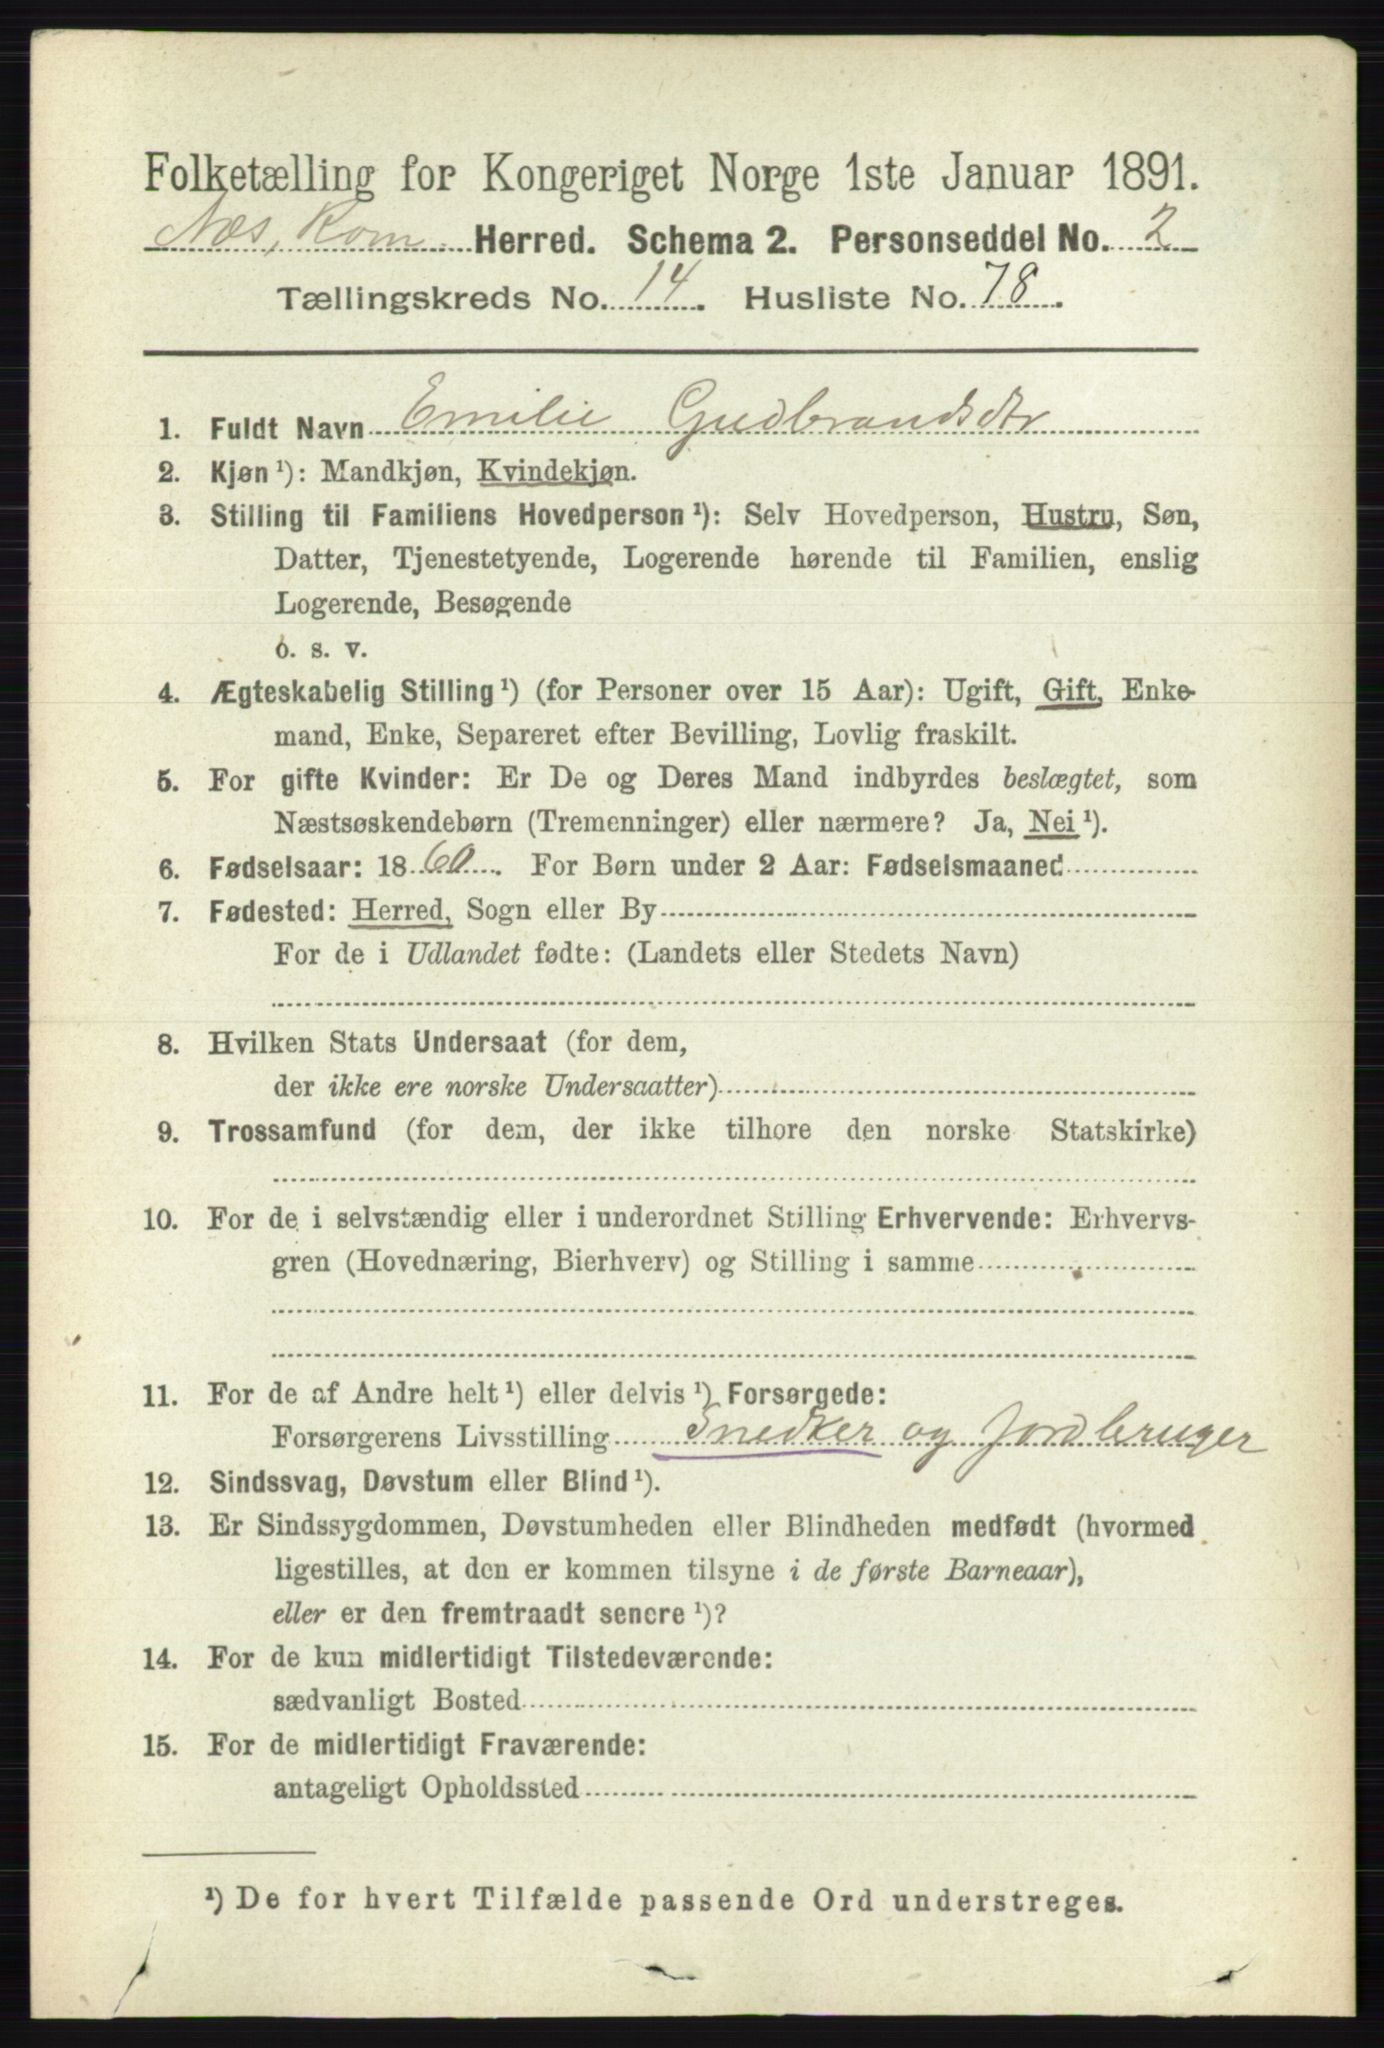 Folketælling for Kongeriget Norge 1ste Januar 1891.
Næs, Rom. Herred. Schema 2. Personseddel No. 2
Tællingskreds No. 14. Husliste No. 78.
1. Fuldt Navn Emilie Gudbrandsdtr
2. Kjøn¹): Mandkjøn, Kvindekjøn.
3. Stilling til Familiens Hovedperson¹): Selv Hovedperson, Hustru, Søn,
Datter, Tjenestetyende, Logerende hørende til Familien, enslig
Logerende, Besøgende
o. s. v.
4. Ægteskabelig Stilling¹) (for Personer over 15 Aar): Ugift, Gift, Enke-
mand, Enke, Separeret efter Bevilling, Lovlig fraskilt.
5. For gifte Kvinder: Er De og Deres Mand indbyrdes beslægtet, som
Næstsøskendebørn (Tremenninger) eller nærmere? Ja, Nei¹).
6. Fødselsaar: 1860. For Børn under 2 Aar: Fødselsmaaned
7. Fødested: Herred, Sogn eller By
For de i Udlandet fødte: (Landets eller Stedets Navn)
8. Hvilken Stats Undersaat (for dem,
der ikke ere norske Undersaatter)
9. Trossamfund (for dem, der ikke tilhore den norske Statskirke)
10. For de i selvstændig eller i underordnet Stilling Erhvervende: Erhvervs-
gren (Hovednæring, Bierhverv) og Stilling i samme
11. For de af Andre helt¹) eller delvis¹) Forsørgede:
Forsørgerens Livsstilling Snedker og Jordbruger
12. Sindssvag, Døvstum eller Blind¹).
13. Er Sindssygdommen, Døvstumheden eller Blindheden medfødt (hvormed
ligestilles, at den er kommen tilsyne i de første Barneaar),
eller er den fremtraadt senere¹)?
14. For de kun midlertidigt Tilstedeværende:
sædvanligt Bosted
15. For de midlertidigt Fraværende:
antageligt Opholdssted
¹) De for hvert Tilfælde passende Ord understreges.